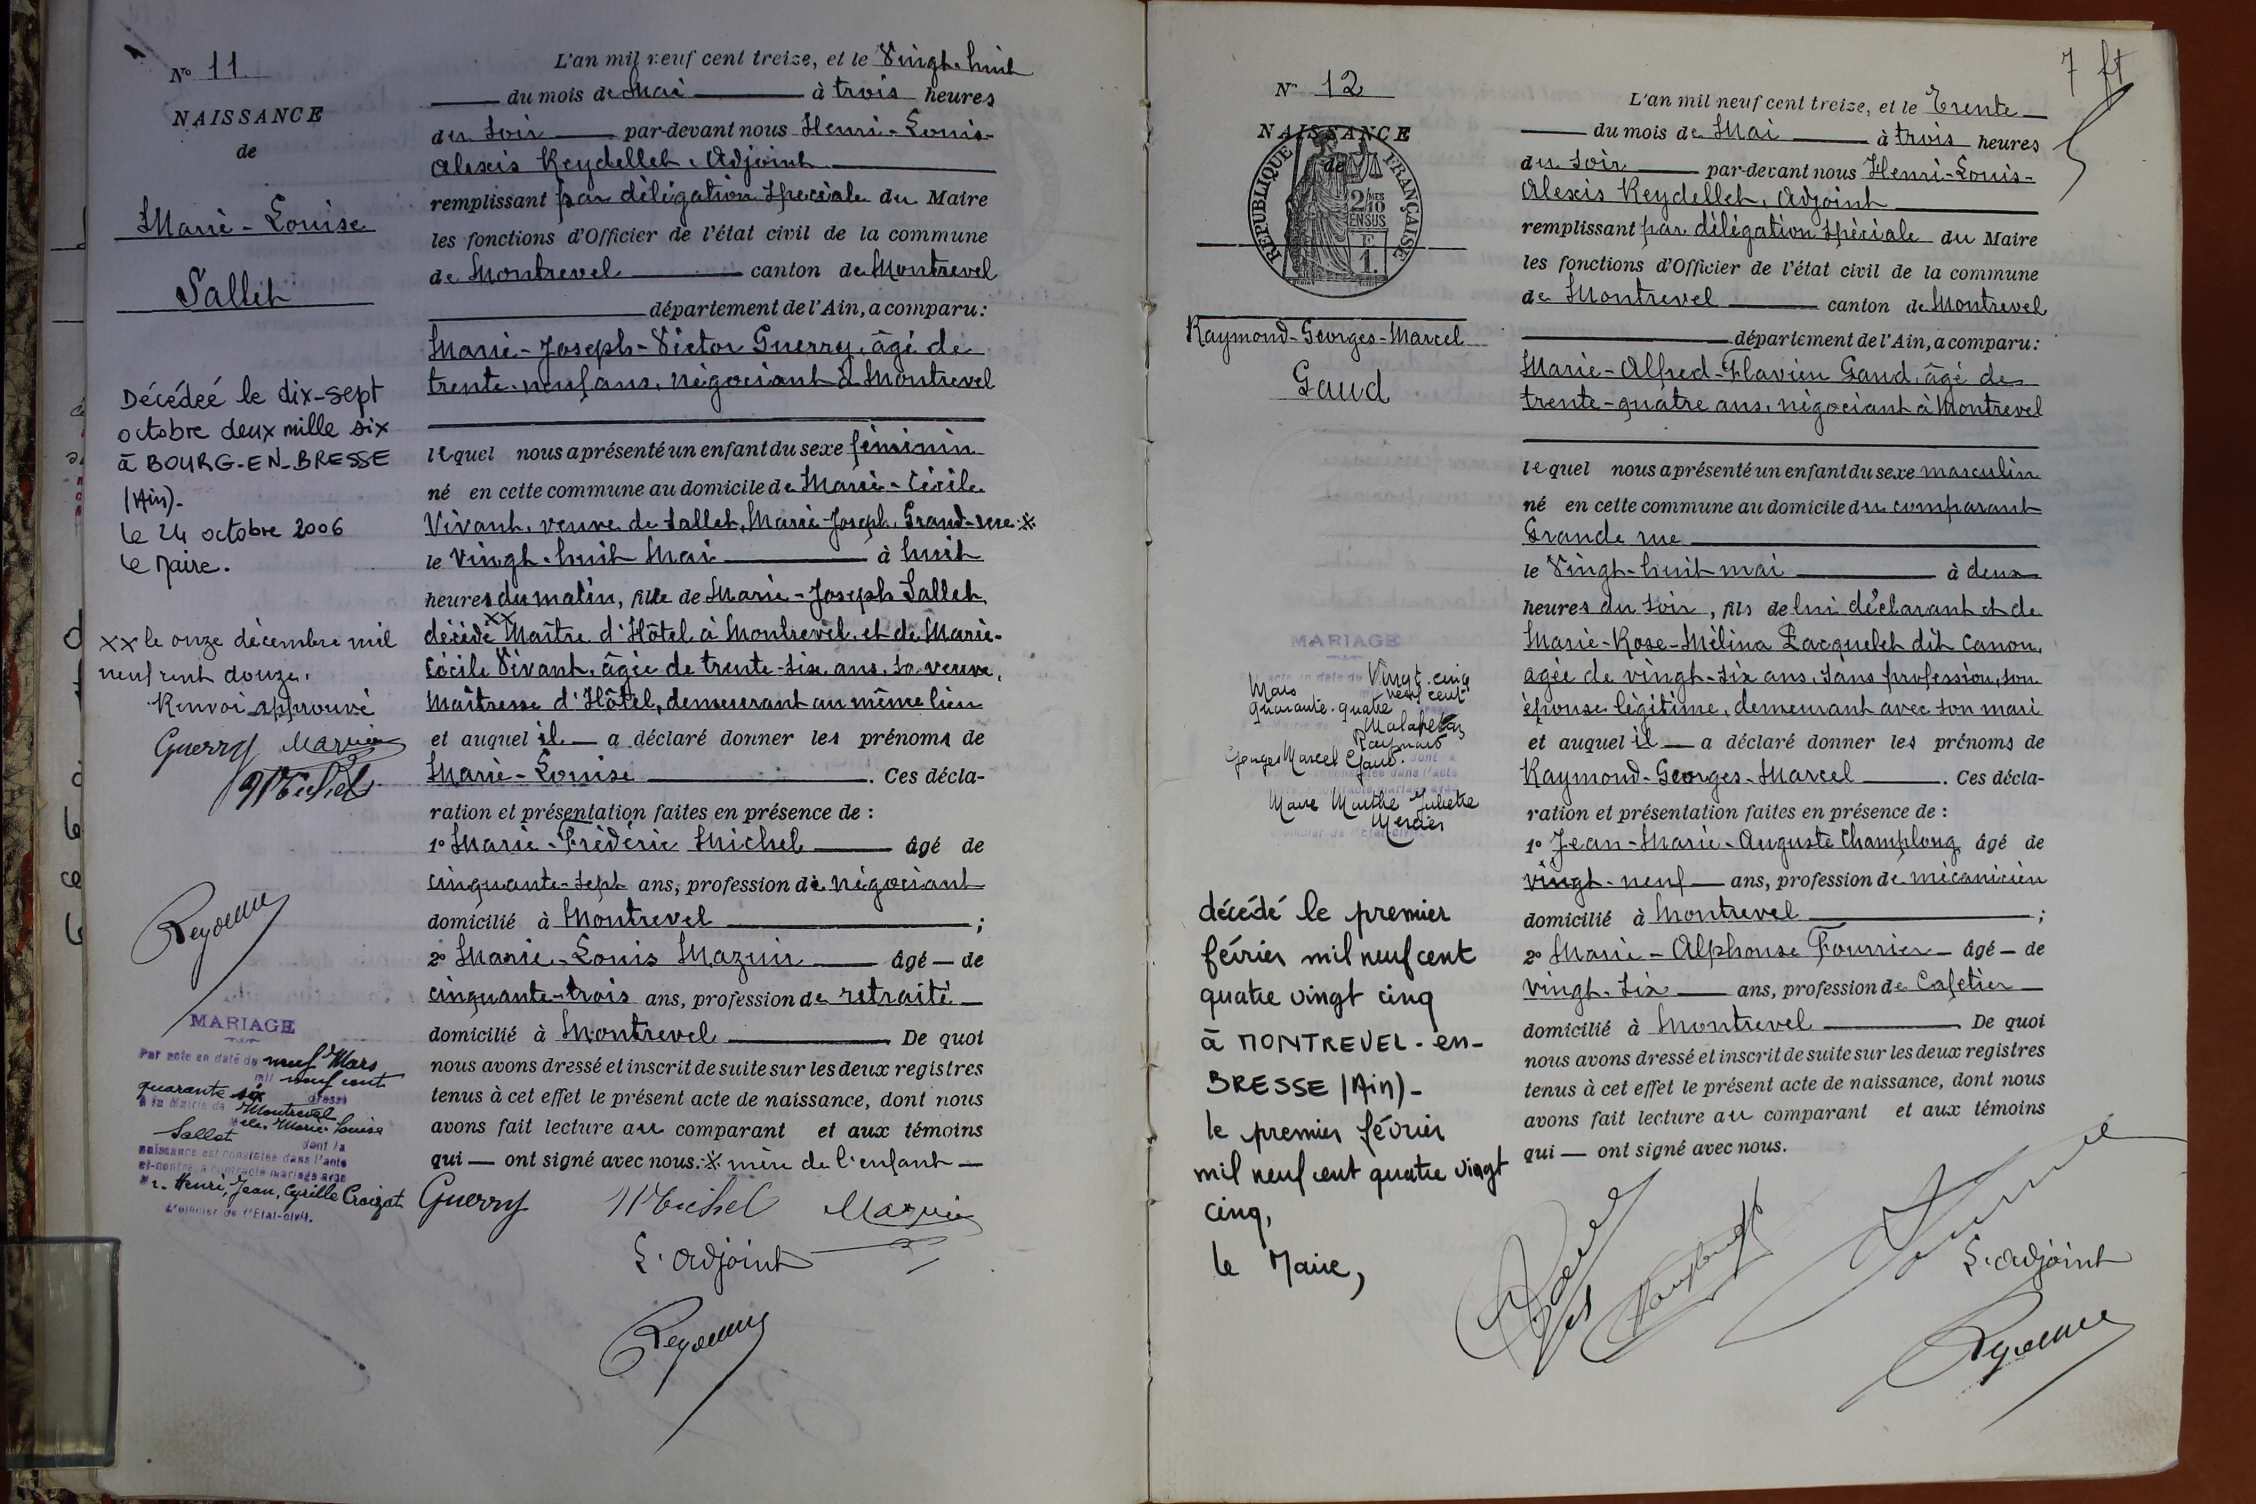 N° 11
NAISSANCE
de
Marie-Louise
Sallet
Décédée le dix-sept
octobre deux mille six
à BOURG-EN-BRESSE
(Ain)-
le 24 octobre 2006
le Maire.
xx le onze décembre mil
neuf cent douze.
Renvoi approuvé
Guerry Mazuir
Michel
Reydellet
MARIAGE
Par acte en date du neuf Mars
mil neuf cent
quarante six dressé
à la Mairie de Montrevel
Melle Marie Louise
Sallet dont la
naissance est constatée dans l'acte
ci-contre a contracté mariage avec
Mr. Henri, Jean, Cyrille Croizat
L'officier de l'Etat-civil.
L'an mil neuf cent treize, et le Vingt-huit
du mois de Mai à trois heures
du soir par-devant nous Henri-Louis-
Alexis Reydellet, Adjoint
remplissant par délégation spéciale du Maire
les fonctions d'Officier de l'état civil de la commune
de Montrevel canton de Montrevel
département de l'Ain, a comparu:
Marie-Joseph-Victor Guerry, âgé de
trente-neuf ans, négociant à Montrevel
lequel nous a présenté un enfant du sexe féminin
né en cette commune au domicile de Marie-Cécile
Vivant, veuve de Sallet, Marie-Joseph, Grand-rue ※
le vingt-huit Mai à huit
heures du matin, fille de Marie-Joseph Sallet,
décédé xx Maître d'Hôtel à Montrevel, et de Marie-
Cécile Vivant, âgée de trente-six ans, sa veuve,
Maîtresse d'Hôtel, demeurant au même lieu
et auquel il a déclaré donner les prénoms de
Marie-Louise. Ces décla-
ration et présentation faites en présence de :
1° Marie-Frédéric Michel âgé de
cinquante-sept ans, profession de négociant
domicilié à Montrevel ;
2° Marie-Louis Mazuir âgé de
cinquante-trois ans, profession de retraité
domicilié à Montrevel De quoi
nous avons dressé et inscrit de suite sur les deux registres
tenus à cet effet le présent acte de naissance, dont nous
avons fait lecture au comparant et aux témoins
qui ont signé avec nous. ※ mère de l'enfant
Guerry Michel Mazuir
L'adjoint
Reydellet
7 ft
N° 12
NAISSANCE
de
REPUBLIQUE FRANÇAISE
2/10 MES
EN SUS
F
1.
Raymond-Georges-Marcel
Gaud
MARIAGE
acte en date du Vingt-cinq
Mars neuf cent
quarante-quatre
Raymond
Georges Marcel Gaud.
Marie Marthe Juliette
Mercier
décédé le premier
février mil neuf cent
quatre vingt cinq
à MONTREVEL-en-
BRESSE (Ain)-
le premier février
mil neuf cent quatre vingt
cinq,
le Maire,
L'an mil neuf cent treize, et le Trente
du mois de Mai à trois heures
du soir par-devant nous Henri-Louis-
Alexis Reydellet, Adjoint
remplissant par délégation spéciale du Maire
les fonctions d'Officier de l'état civil de la commune
de Montrevel canton de Montrevel
département de l'Ain, a comparu:
Marie-Alfred-Flavien Gaud, âgé de
trente-quatre ans, négociant à Montrevel
lequel nous a présenté un enfant du sexe masculin
né en cette commune au domicile du comparant
Grande rue
le Vingt-huit mai à deux
heures du soir, fils de lui déclarant et de
Marie-Rose-Mélina Lacquelet dit Canon,
agée de vingt-six ans, sans profession, son
épouse légitime, demeurant avec son mari
et auquel il a déclaré donner les prénoms de
Raymond-Georges-Marcel. Ces décla-
ration et présentation faites en présence de :
1° Jean-Marie-Auguste Champlong âgé de
vingt-neuf ans, profession de mécanicien
domicilié à Montrevel ;
2° Marie-Alphonse Fournier âgé de
vingt-six ans, profession de Cafetier
domicilié à Montrevel De quoi
nous avons dressé et inscrit de suite sur les deux registres
tenus à cet effet le présent acte de naissance, dont nous
avons fait lecture au comparant et aux témoins
qui ont signé avec nous.
L'adjoint
Reydellet